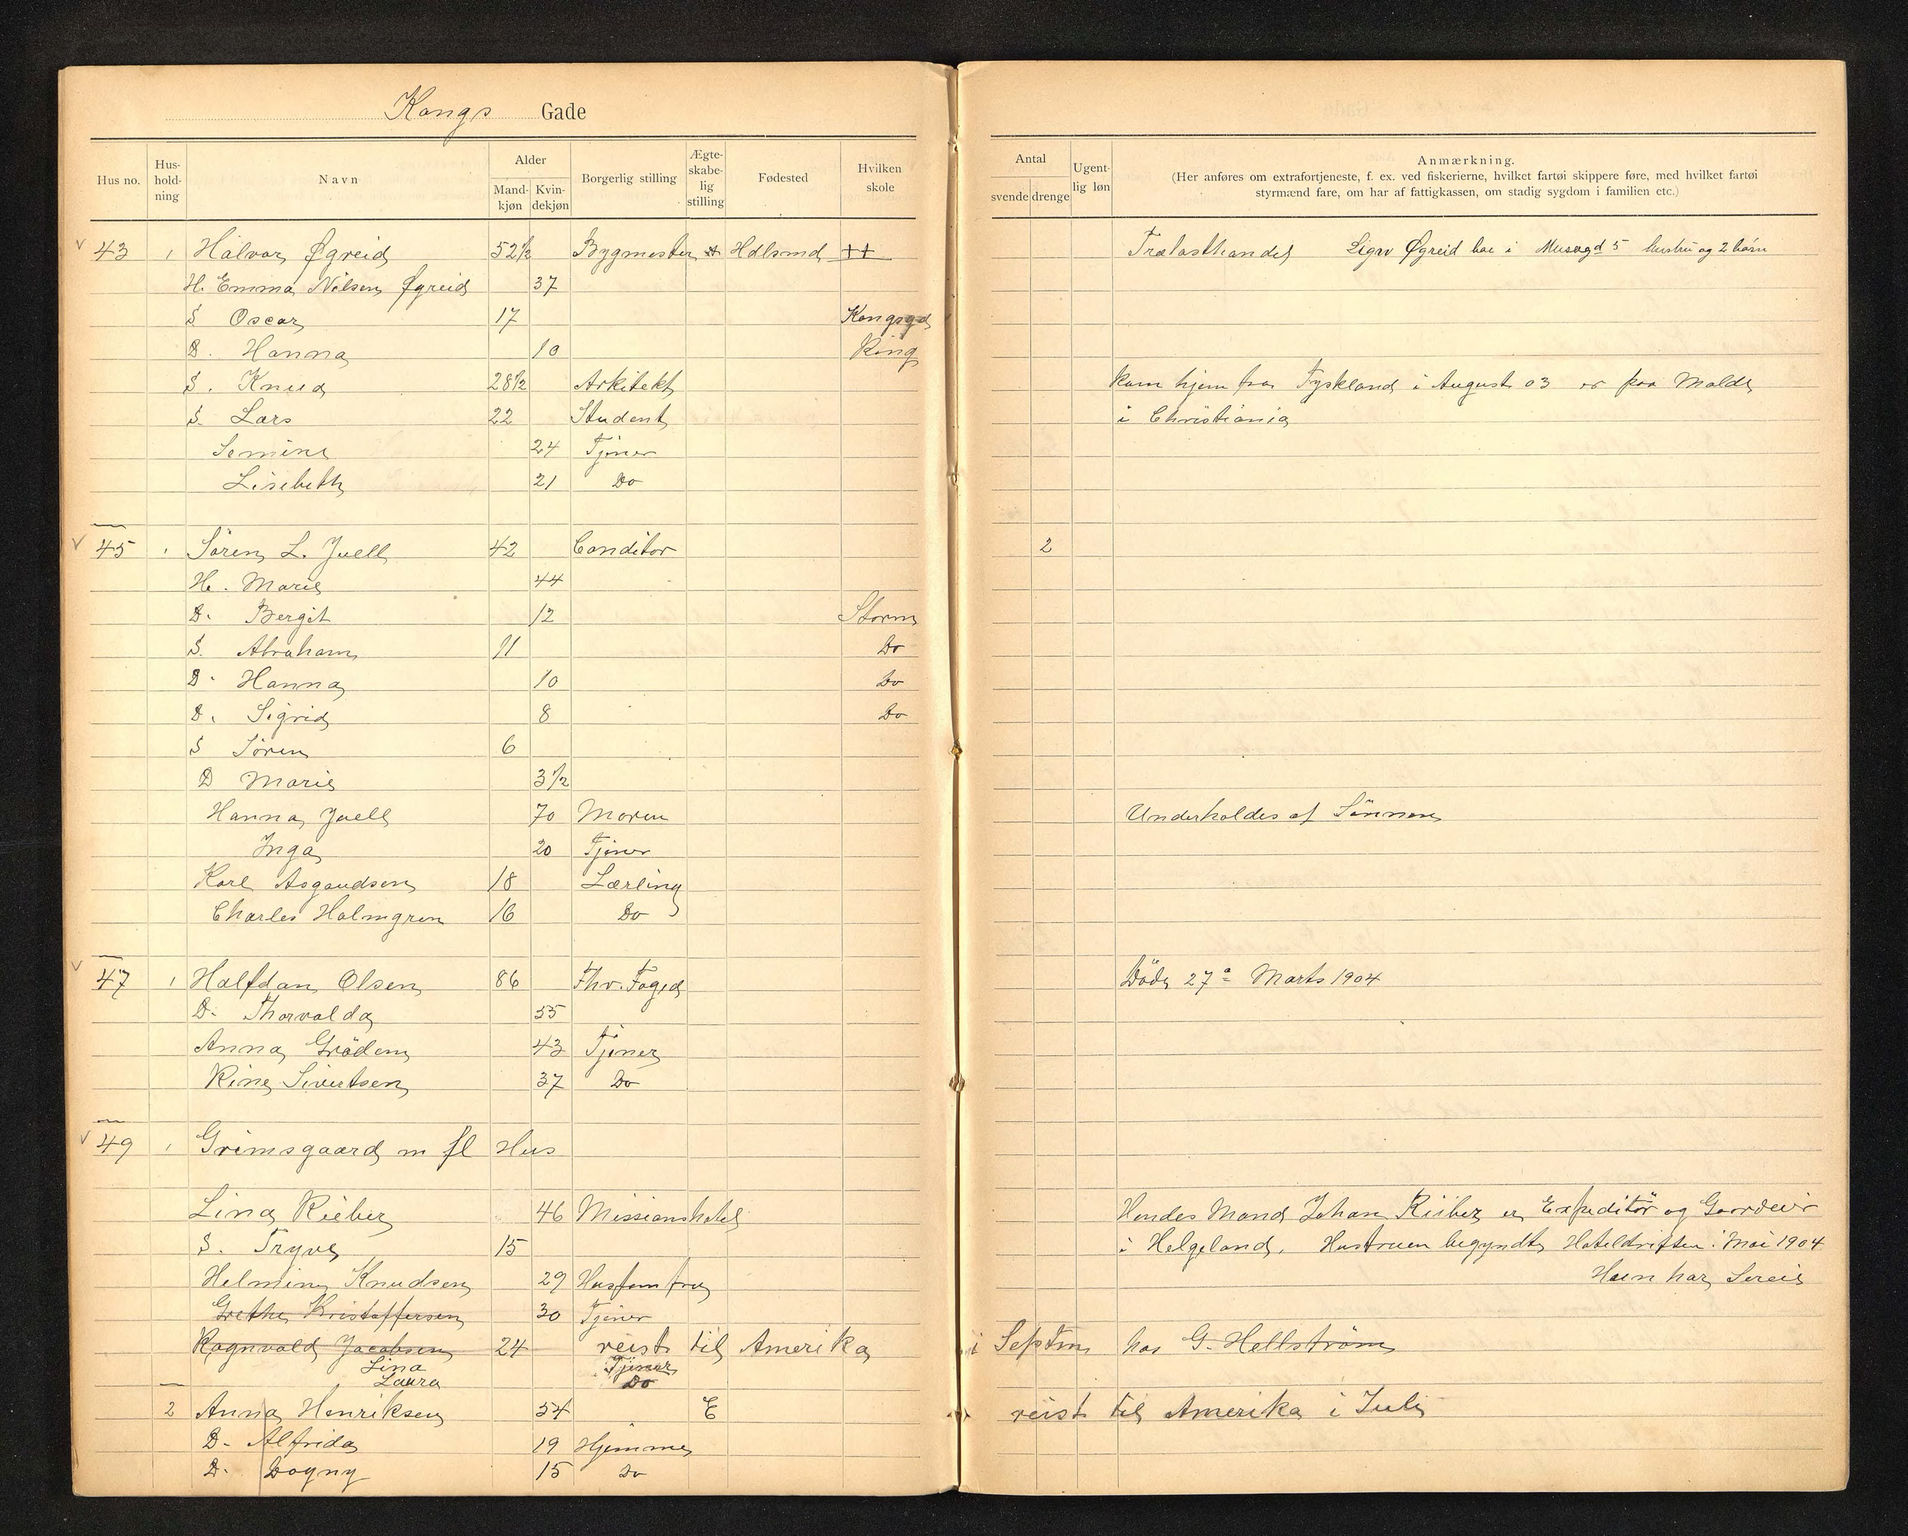 Kongs Gade
Hus no.
Hus-
hold-
ning
Navn
Alder
Mand-
kjøn
Kvin-
dekjøn
Borgerlig stilling
Ægte-
skabe-
lig
stilling
Fødested
Hvilken
skole
Antal
svende
drenge
Ugent-
lig løn
Anmærkning.
(Her anføres om extrafortjeneste, f. ex. ved fiskerierne, hvilket fartøi skippere føre, med hvilket fartøi
styrmænd fare, om har af fattigkassen, om stadig sygdom i familien etc.)
43 1 Halvor Øgreid 52 1/2 Bygmester Trælasthandel Øgreid bor i Musegd 5 hustru og 2 børn
H. Emma Nilsen Øgreid 37
S. Oscar 17 Kongsgd
D. Hanna 10 Ring
S. Knud 28 1/2 Arkitekt kom hjem fra Tyskland i August 03 er paa Molde
S. Lars 22 Student i Christiania
Semine 24 Tjener
Lisebeth 21 Do
45 1 Sören L. Juell 42 Conditor 2
H. Marie 44
D. Bergit 12 Storm
S. Abraham 11 Do
D. Hanna 10 Do
D. Sigrid 8 Do
S Sören 6
D Marie 3 1/2
Hanna Juell 70 Moren Underholdes af Sönnen
Inga 20 Tjener
Karl Asgaudsen 18 Lærling
Charles Holmgren 16 Do
47 1 Halfdan Olsen 86 Fhv. Foged Döde 27de Marts 1904
D. Thorvalda 55
Anna Grödem 43 Tjener
Rine Sivertsen 37 Do
49 1 Grimsgaard m fl Hus
Lina Rieber 46 Missionshotel Hendes Mand Johan Rieber er Expeditör og Gaardeier
S. Tryve 15 i Helgeland. Hustruen begyndte Hoteldriften i Mai 1904
Helmine Knudsen 29 Husjomfru Hun har
Grethe Kristoffersen 30 Tjener
Ragnvald Jacobsen 24 reist til Amerika i Septm hos G. Hellström
Lina Tjener
Laura Do
2 Anna Henriksen 54 E reist til Amerika i Juli
D. Alfrida 19 Hjemme
D. Dagny 15 Do